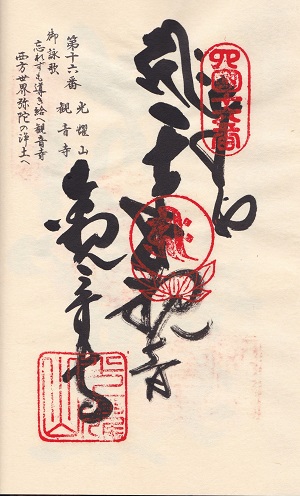 奉納
千手観音
観音寺
四國十六番
第十六番 光耀山
観音寺
御詠歌
忘れずも導き給へ観音寺
西方世界弥陀の浄土へ